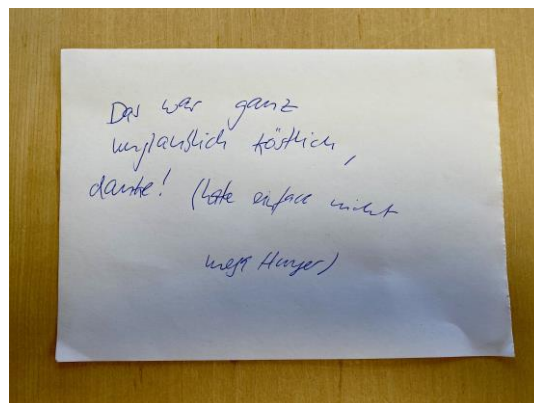 Das war ganz
unglaublich köstlich,
danke! (hatte einfach nicht
mega Hunger)